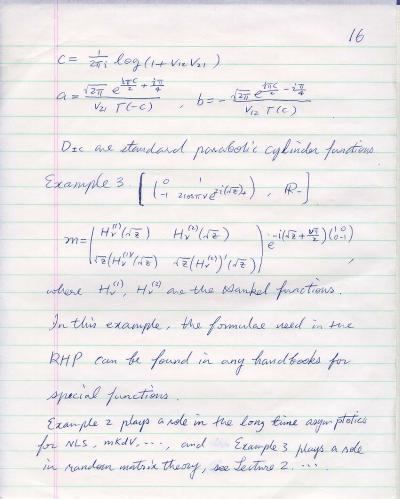 16
c = 1/2πi log(1 + V12 V21)
a = √2π e^(iπc/2 + iπ/4) / V21 Γ(-c) , b = - √2π e^(iπc/2 - iπ/4) / V12 Γ(c)
D±c are standard parabolic cylinder functions
Example 3 [ ( 1 0 -1 2 cos πν e^2i(√z)+ ) , ℝ- ]
m = ( Hν^(1)(√z) Hν^(2)(√z)
√z (Hν^(1))'(√z) √z (Hν^(2))'(√z) ) e^-i(√z + νπ/2)(1 0 0 -1) ,
where Hν^(1), Hν^(2) are the Hankel functions.
In this example, the formulae need in the
RHP can be found in any handbooks for
special functions.
Example 2 plays a role in the long time asymptotics
for NLS, mKdV, ..., and Example 3 plays a role
in random matrix theory, see Lecture 2. ...